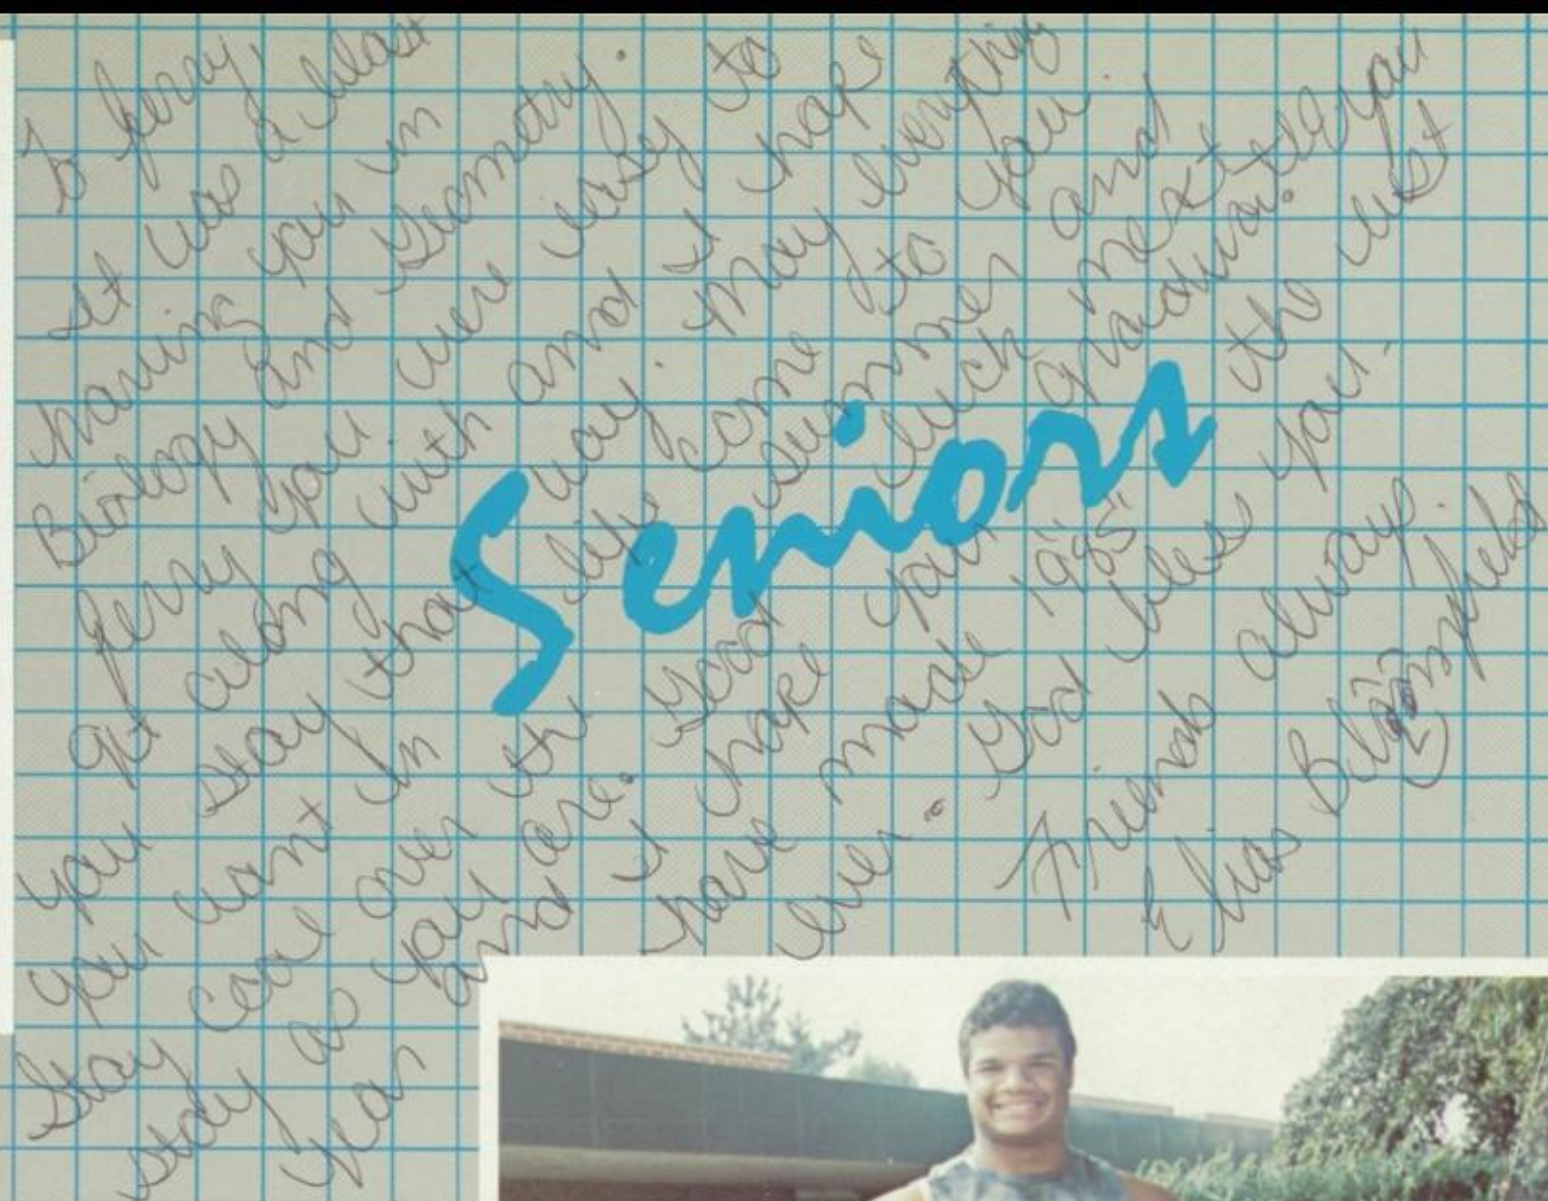 To Jerry,
It was a blast
having you in
Biology and Geometry.
Jerry you were easy to
get along with and I hope
you stay that way. May everything
you want in life come to you.
Stay cool over the summer and
stay as you are. Good luck next
year and I hope your graduation
have made 1985 the best
ever. God bless you.
Friends always
Elias
Seniors